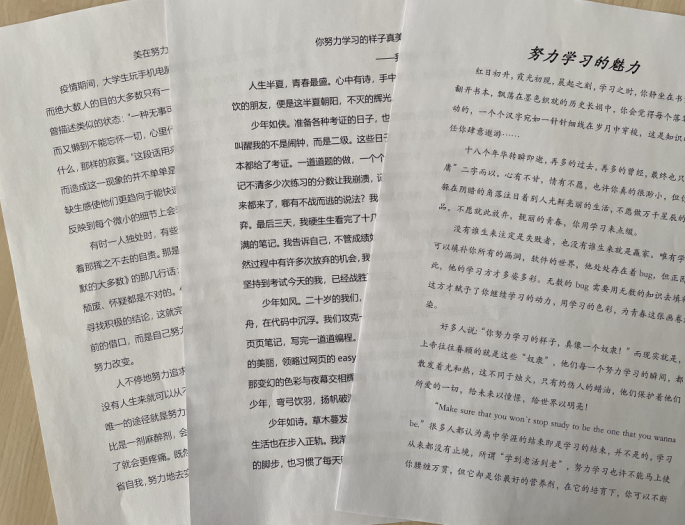 美在努力
疫情期间，大学生玩手机电脑
而绝大数人的目的大多数只有一
曾描述类似的状态：“一种无事可
而又懒到不能忘怀一切，心里什
什么，那样的寂寞。”这段话用来
而造成这一现象的并不单单是
缺生感使他们更趋向于能快速
反映到每个微小的细节上会
有时一人独处时，有些
着那挥之不去的自责。那是
默的大多数》的那几行话：
颓废、怀疑都是不对的。
寻找积极的结论，这就完
前的借口，而是自己努力
努力改变。
人不停地努力追求
没有人生来就可以从
唯一的途径就是努力
比是一剂麻醉剂，会
了就会更疼痛。既然
省自我，努力地去
你努力学习的样子真美
人生半夏，青春最盛。心中有诗，手中
饮的朋友，便是这半夏朝阳，不灭的辉光
少年如侠。准备各种考证的日子，也
叫醒我的不是闹钟，而是二级。这些日子
本都给了考证。一道道题的做，一个个
记不清多少次练习的分数让我崩溃，
来都来了，哪有不战而逃的说法？我
弃。最后三天，我硬生生看完了十几
满的笔记。我告诉自己，不管成绩如
然过程中有许多次放弃的机会，我
坚持到考试今天的我，已经战胜
少年如风。二十岁的我们，
舟，在代码中沉浮。我们攻克一
页页笔记，写完一道道编程。
的美丽，领略过网页的 easy
那变幻的色彩与夜幕交相辉
少年，弯弓饮羽，扬帆破
少年如诗。草木蔓发
生活也在步入正轨。我渐
的脚步，也习惯了每天
努力学习的魅力
红日初升，霞光初现，晨起之刻，学习之时，你静坐在书
翻开书本，飘落在墨色织就的历史长娟中，你会觉得每个落
动的，一个个汉字宛如一针针细线在岁月中穿梭，这是知识
任你肆意遨游……
十八个年华转瞬即逝，再多的过去，再多的曾经，最终也只
庸”二字而以，心有不甘，情有不愿，也许你真的很渺小，但你
躲在阴暗的角落注目着别人光鲜亮丽的生活，不愿做万千星辰的
品，不愿就此放弃，靓丽的青春，你用学习来点缀。
没有谁生来注定是失败者，也没有谁生来就是赢家，唯有学
可以填补你所有的漏洞，软件的世界，他处处存在着 bug，但正因
此，他的学习方才多姿多彩。无数的 bug 需要用无数的知识去填补
这方才赋予了你继续学习的动力，用学习的色彩，为青春这张画卷
染。
好多人说：“你努力学习的样子，真像一个奴隶！”而现实就是，
上帝往往眷顾的就是这些“奴隶”，他们每一个努力学习的瞬间，都
散发着光和热，这不同于烛火，只有灼伤人的蜡油，他们保护着他们
所爱的一切，给未来以憧憬，给世界以明亮！
“Make sure that you won`t stop study to be the one that you wanna
be.”很多人都认为高中学涯的结束即是学习的结束，并不是的，学习
从来都没有止境，所谓“学到老活到老”，努力学习也许不能马上使
你腰缠万贯，但它却是你最好的营养剂，在它的培育下，你可以不断